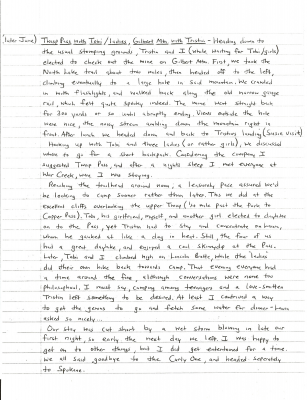 (later June) Troup Pass with Tobi / ladies, Gilbert Mtn. with Tristin - Heading down to
the usual stomping grounds, Tristin and I (while waiting for Tobi/girls)
elected to check out the mine on Gilbert Mtn. First, we took the
North Lake trail about two miles, then headed off to the left,
climbing eventually to a large hole in said mountain. We crawled
in with flashlights, and walked back along the old narrow gauge
rail, which felt quite spooky indeed. The mine went straight back
for 300 yards or so until abruptly ending. Views outside the hole
were nice, the ore stream making down the mountain right in
front. After lunch we headed down and back to Tristins landing (Susie visit)
Hooking up with Tobi and three ladies (or rather girls), we discussed
where to go for a short backpack. Considering the company I
suggested Troup Pass, and after a nights sleep I met everyone at
War Creek, where I was staying.
Reaching the trailhead around noon, a leisurely pace assured we'd
be looking for camp sooner rather than later. This we did at the
excellent cliffs overlooking the upper Troup (½ mile past the fork to
Copper Pass). Tobi, his girlfriend, myself, and another girl elected to dayhike
on to the Pass, yet Tristin had to stay and concentrate on
whom he gawked at like a dog in heat. Still, the four of us
had a great dayhike, and enjoyed a cool skinnydip at the Pass.
Later, Tobi and I climbed high on Lincoln Butte, while the ladies
did their own hike back towards camp. That evening everyone had
a time around the fire, although conversations were none too
philosophical, I must say, camping among teenagers and a love-smitten
Tristin left something to be desired. At least I contrived a way
to get the geezas to go and fetch some water for dinner - havin
asked so nicely...
Our stay was cut short by a wet storm blowing in late our
first night, so early the next day we left. I was happy to
get on to other things, but I did get entertained for a time.
We all said goodbye to the Curly One, and headed separately
to Spokane.